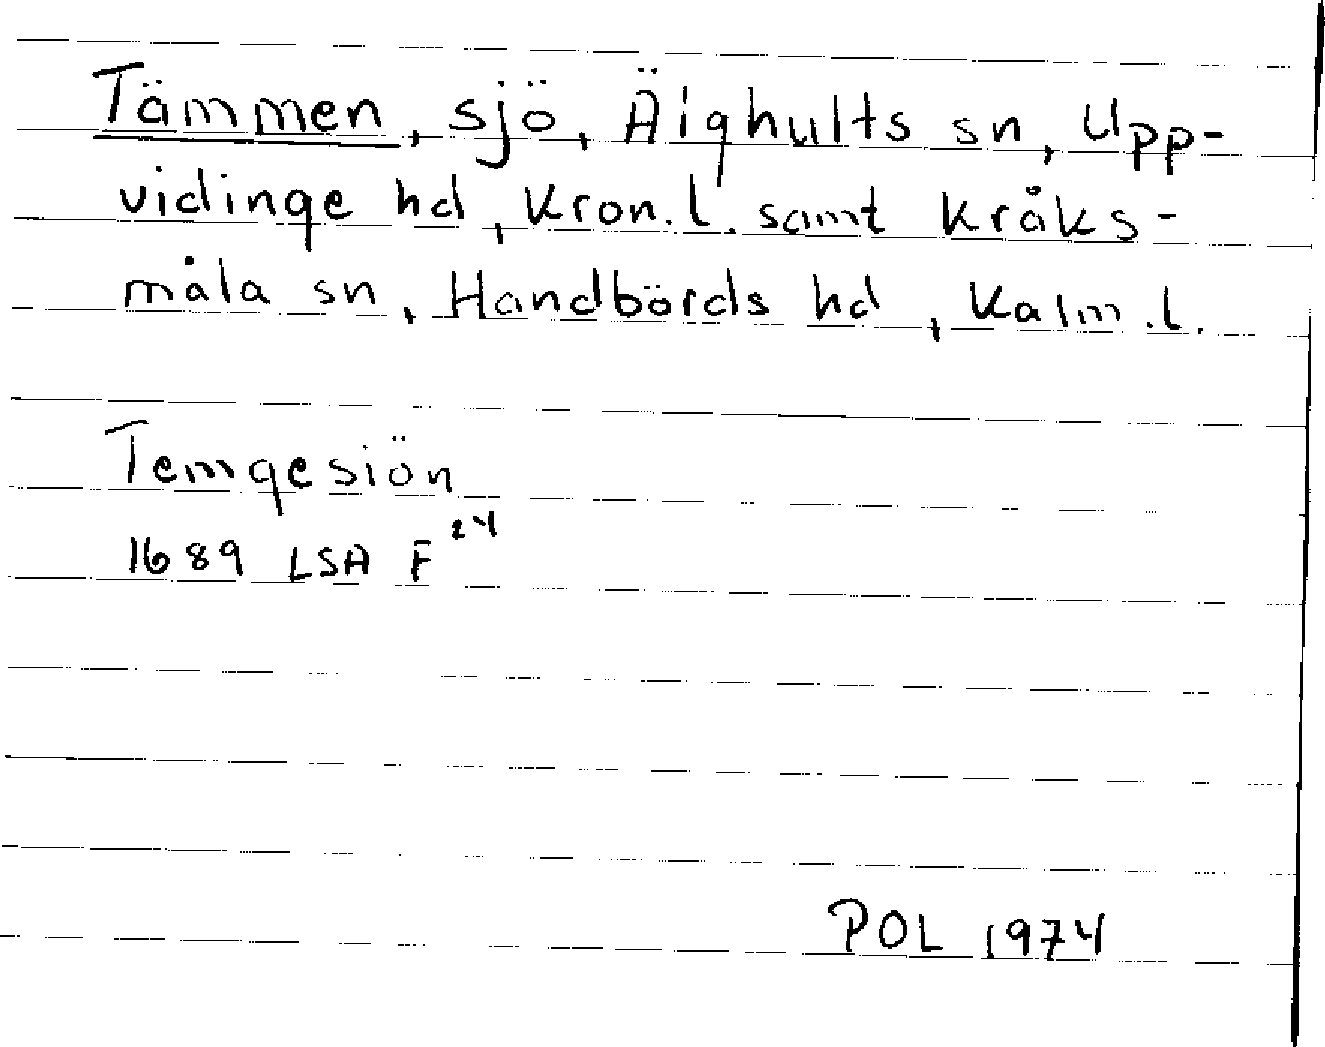 Tämmen, sjö, Älghults sn, Upp-
vidinge hd, Kron.l. samt Kråks-
måla sn, Handbörds hd, Kalm.l.
Temgesiön
1689 LSA F 24
POL 1974